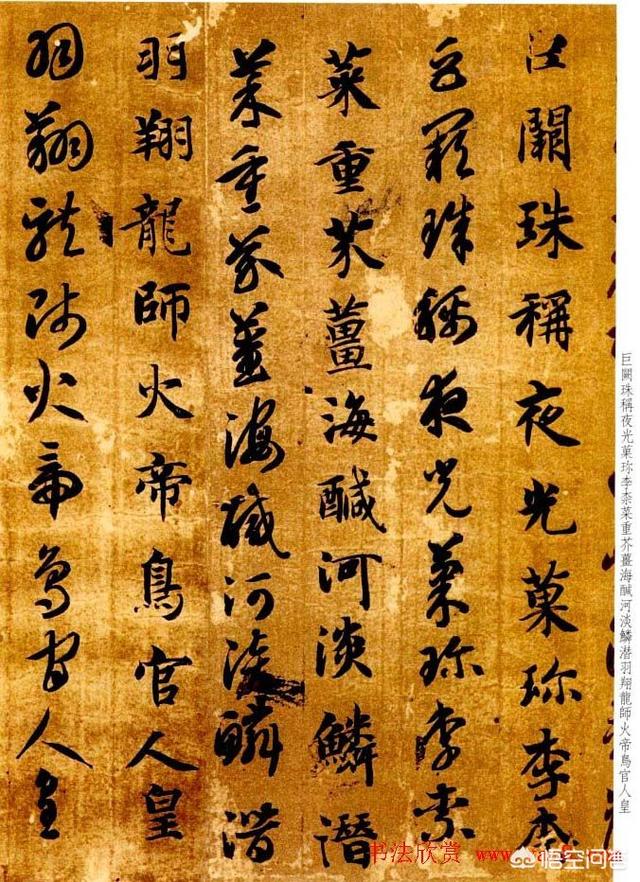 巨闕珠稱夜光菓珍李柰菜重芥薑海醎河淡鱗潜羽翔龍師火帝鳥官人皇
巨闕珠稱夜光菓珍李柰
巨闕珠稱夜光菓珍李柰
菜重芥薑海醎河淡鱗潛
菜重芥薑海醎河淡鱗潛
羽翔龍師火帝鳥官人皇
羽翔龍師火帝鳥官人皇
书法欣赏
悟空问答